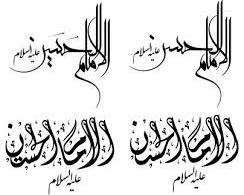 الإمام حسن عليه السلام
الإمام حسين عليه السلام
الإمام الحسن
عليه السلام
الإمام الحسين
عليه السلام